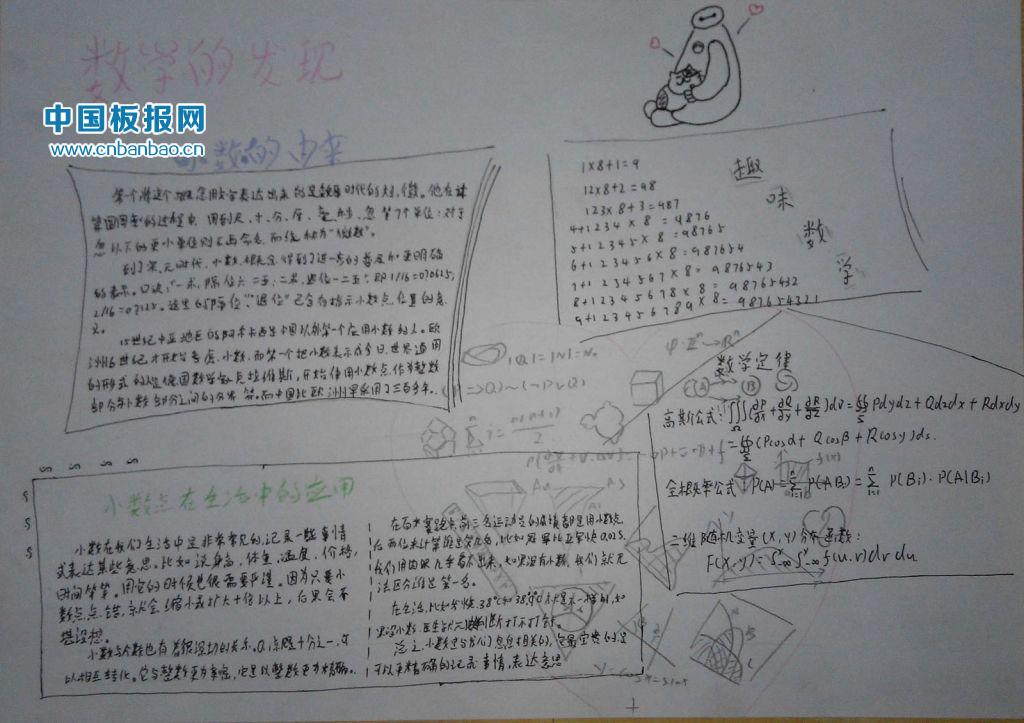 数学的发现
中国板报网
www.cnbanbao.cn
小数的由来
第一个将这个概念用文字表达出来的是魏晋时代的刘徽。他在计
算圆周率的过程中,用到尺、寸、分、厘、毫、秒、忽等7个单位;对于
忽以下的更小单位则不再命名,而统称为“微数”。
到了宋、元时代,小数概念得到了进一步的普及和更明确
的表示。
15世纪中亚地区的阿尔卡西是中国以外第一个应用小数的人。欧
洲16世纪才开始考虑小数,而第一个把小数表示成今日世界通用
的形式的人是德国数学家克拉维斯,开始使用小数点作为整数
部分与小数部分之间的分界符。而中国比欧洲早采用了三百多年。
1×8+1=9
12×8+2=98
123×8+3=987
4+1234×8=9876
5+12345×8=98765
6+123456×8=987654
7+1234567×8=9876543
8+12345678×8=98765432
9+123456789×8=987654321
趣
味
数
学
|Q|=|N|=ℵ₀
数学定律
高斯公式:∭Ω(∂P/∂x+∂Q/∂y+∂R/∂z)dv=∯Σ Pdydz+Qdzdx+Rdxdy
=∯Σ(Pcosα+Qcosβ+Rcosγ)ds.
全概率公式 P(A)=Σ P(ABi)=Σ P(Bi)·P(A|Bi)
二维随机变量(X,Y)分布函数:
F(X,Y)=∫∫f(u,v)dvdu
小数点在生活中的应用
小数在我们生活中是非常常见的,记录一些事情
或表达某些意思。比如说身高,体重,温度,价格,
时间等等。用它的时候也很需要严谨。因为只要小
数点点错,就会缩小或扩大十倍以上,后果会不
堪设想。
小数与分数也有着很深切的关系。0.1点就是十分之一,可
以相互转化。它与整数更为亲密,它是以整数更为精确。
在百米赛跑中,前三名运动员的成绩都是用小数点
后两位来计算
我们用肉眼几乎看不出来,如果没有小数,我们就无
法区分谁是第一名。
在生活,比如发烧,38℃和38.9℃
总之,小数是与我们息息相关的,它最宝贵的是
可以更精确的记录事情,表达意思